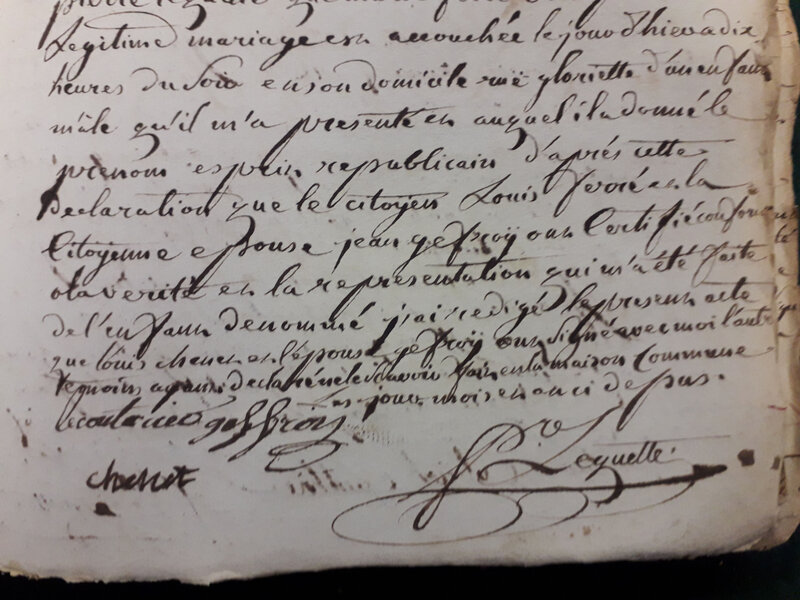 Legitime mariage est accouchée le jour d'hier a dix
heures du Soir en son domicile rue gloriette d'un enfant
mâle qu'il m'a presenté et auquel il a donné le
prenom esprit republicain d'après cette
declaration que le citoyen Louis et la
Citoyenne epouse jean geffroÿ ont Certifié conforme
a la verité et la representation qui m'a été faite
de l'enfant denommé j'ai redigé le present acte
que loüis chenet et l'épouse geffroÿ ont Signé avec moi l'autre
temoin ayant declaré ne le savoir fait en la maison Commune
les jour mois et an ci dessus.
geffroÿ
chenet
Lequelle